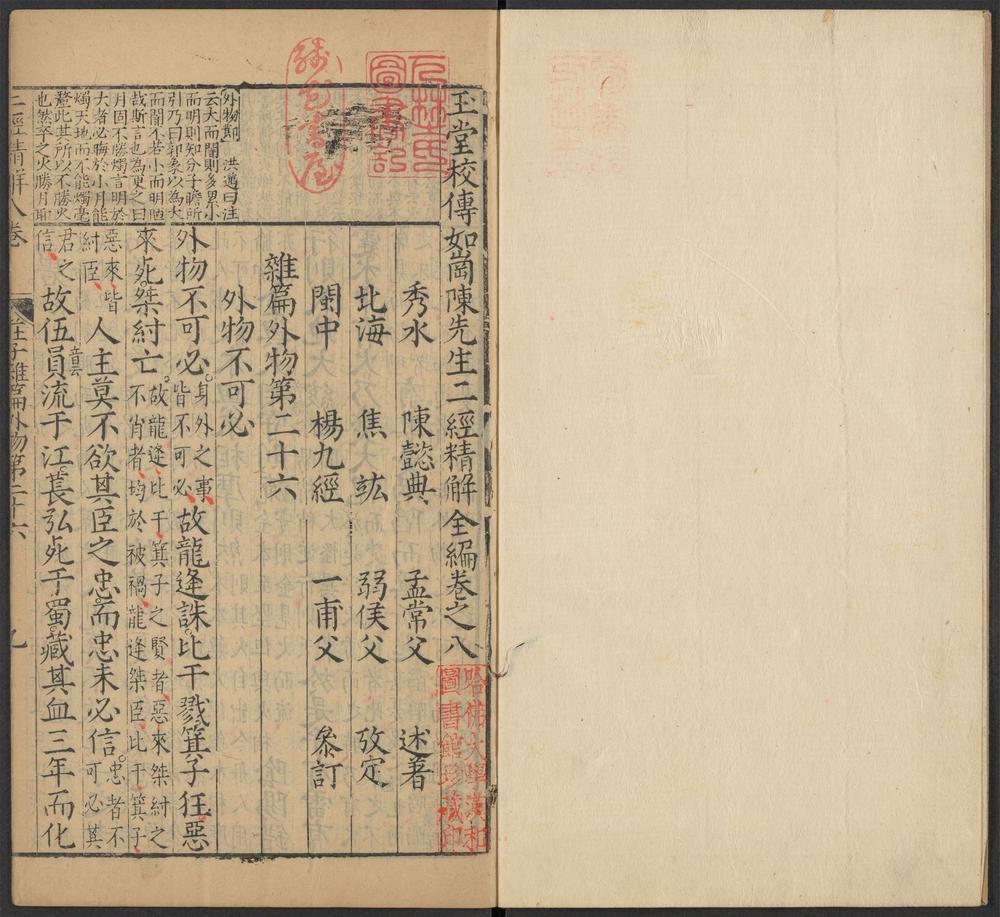 玉堂校傳如崗陳先生二經精解全編卷之八
秀水 陳懿典 孟常父 述著
北海 焦竑 弱侯父 攷定
閩中 楊九經 一甫父 叅訂
雜篇外物第二十六
外物不可必
外物不可必。身外之事皆不可必故龍逄誅。比干戮箕子狂惡
來死。桀紂亡。故龍逄比干箕子之賢者惡來桀紂之不肖者均於被禍龍逄桀臣比干箕子
惡來皆紂臣人主莫不欲其臣之忠。而忠未必信。忠者不可必其
君之信故伍員音云流于江。萇弘死于蜀。藏其血三年而化
外物 洪邁曰注
云大而闇則多累小
而明則知分子瞻所
引乃曰郭象以為大
而闇不若小而明陋
哉斯言也為更之曰
月固不勝燭言明於
大者必晦於小月能
燭天地而不能燭毫
釐此其所以不勝火
也然卒之火勝月耶
二經精解八卷 莊子雜篇外物第二十六 九
哈佛大學漢和
圖書館珍藏印